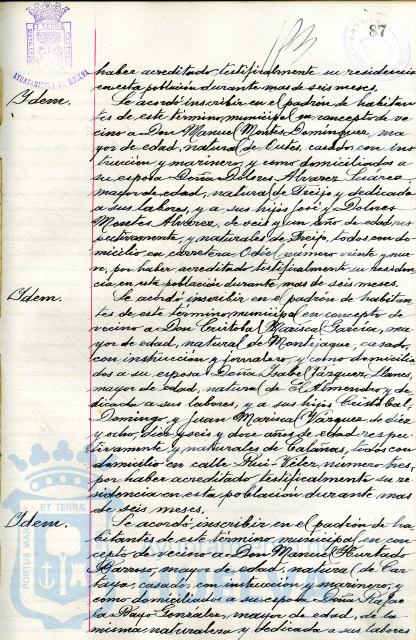 87
AYUNTAMIENTO DE HUELVA
haber acreditado testifical­mente su residencia
en esta población durante mas de seis meses.
Idem. Se acordó inscribir en el padrón de habitan-
tes de este término municipal en concepto de ve-
cino a Don Manuel Montes Domínguez, ma-
yor de edad, natural de casado, con ins-
trucción y marinero, y como domiciliados a
su esposa Doña Dolores Alvarez Suárez,
mayor de edad, natural de y dedicada
a sus labores, y a sus hijos José y Dolores
Alvarez, de seis y un año de edad, res-
pectivamente, y naturales de todos con do-
micilio en carretera Odiel numero veinte y nue-
ve, por haber acreditado testificalmente su residen-
cia en esta población durante mas de seis meses.
Idem. Se acordó inscribir en el padrón de habitan-
tes de este término municipal en concepto de
vecino a Don Cristobal Marisca Garcia, ma-
yor de edad, natural de Montejaque, casado,
con instrucción y jornalero, y como domicilia-
dos a su esposa Doña Isabel Vázquez Llanes,
mayor de edad, natural de El Almendro y de-
dicada a sus labores, y a sus hijos Cristobal,
Domingo y Juan Marisca Vázquez, de diez
y ocho, diez y seis y doce años de edad respec-
tivamente y naturales de Calañas, todos con
domicilio en calle Ruiz Vélez, numero tres,
por haber acreditado testificalmente su re-
sidencia en esta población durante mas
de seis meses.
Idem. Se acordó inscribir en el padrón de ha-
bitantes de este término municipal en con-
cepto de vecino a Don Manuel Hurtado
Barroso, mayor de edad, natural de Car-
taya, casado, con instrucción y marinero, y
como domiciliados a su esposa Doña Rafae-
la Bayo González, mayor de edad, de la
misma naturaleza y dedicada a sus labores
PORTUS MARIS ET TERRÆ